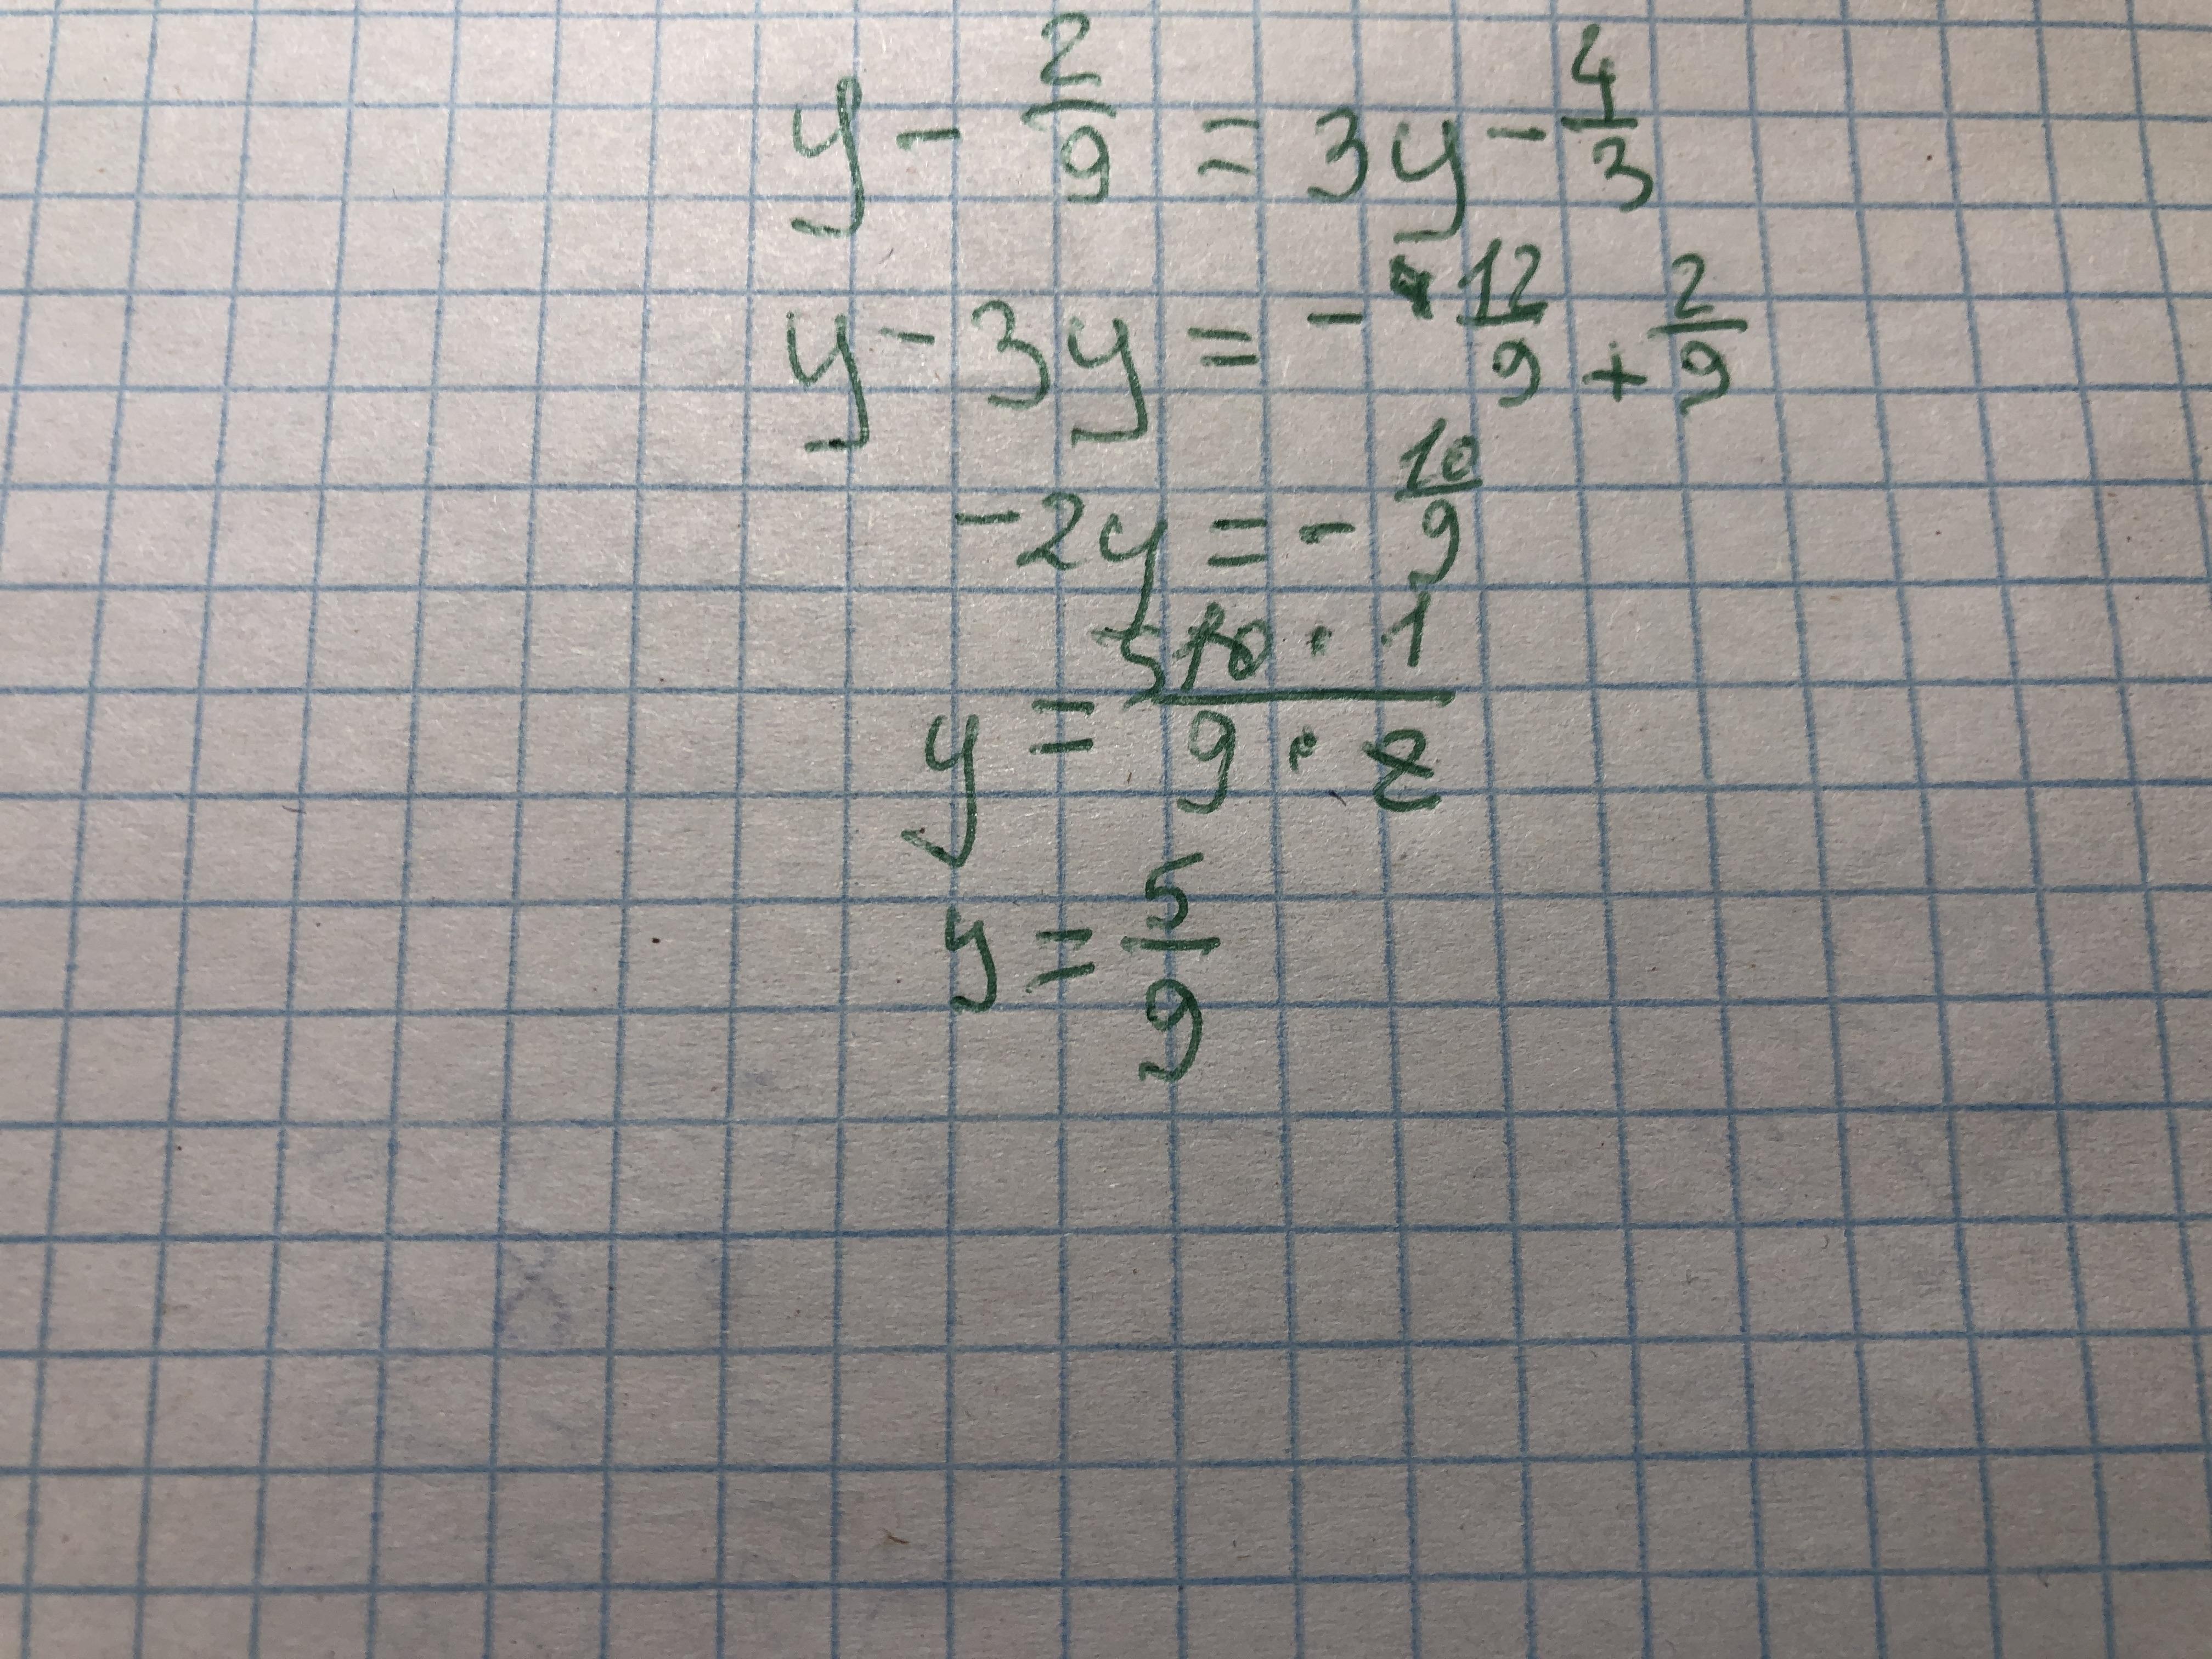 y - 2/9 = 3y - 4/3
y - 3y = - 12/9 + 2/9
-2y = - 10/9
y = 5 10 · 1 / 9 · 2
y = 5/9